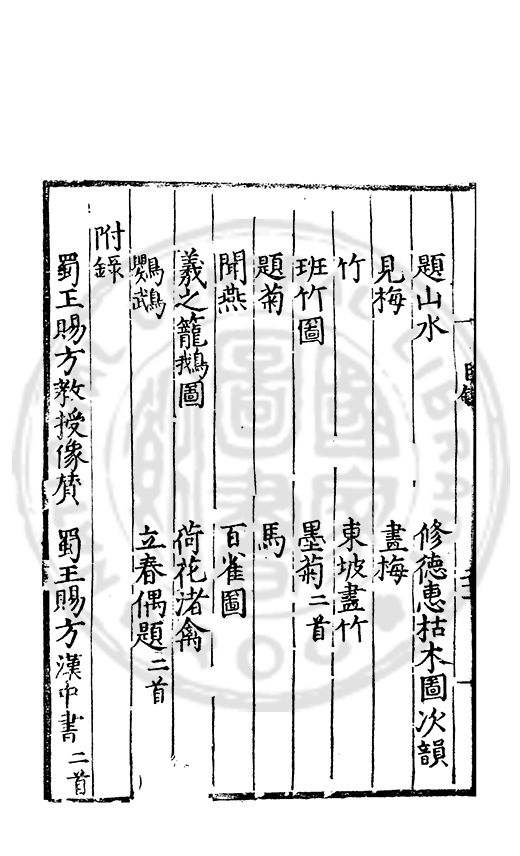 題山水　修德惠枯木圖次韻
見梅　畫梅
竹　東坡畫竹
班竹圖　墨菊二首
題菊　馬
聞燕　百雀圖
羲之籠鵝圖　荷花渚禽
鸚鵡　立春偶題二首
附錄
蜀王賜方教授像贊　蜀王賜方漢中書二首